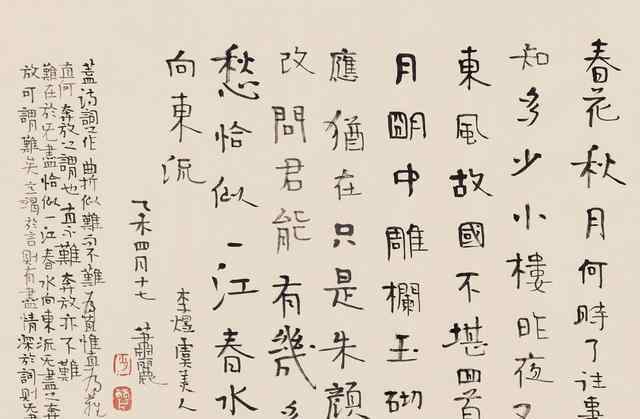 春花秋月何時了往事
知多少小樓昨夜又
東風故國不堪回首
月朙中雕欄玉砌
應猶在只是朱顏
改問君能有幾多
愁恰似一江春水
向東流
李煜虞美人
乙未四月十七 蕭麗
蓋詩詞之作曲折似難而不難惟直為難
直何奔放之謂也直不難奔放亦不難
難在於无盡恰似一江春水向東流无盡之奔
放可謂難矣意竭於言則有盡情深於詞則无